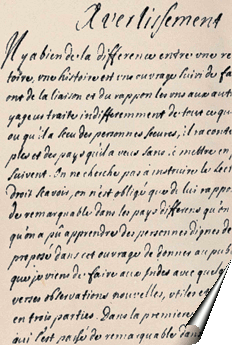 Avertissement
Il y a bien de la difference entre une re
toire, une histoire est une ouvrage suiui de fa
ont de la liaison et du rapport les uns aux aut
yageur traite indifferemment de tout ce qu
ou qu'il a sceu des personnes seures, il raconte
ples et des pays qu'il a veus sans mettre en
suivent. On ne cherche pas à instruire le Lect
droit scavoir, on n'est obligé que de lui rappo
de remarquable dans les pays differens qu'on
qu'on a pû apprendre des personnes dignes de
proposé dans cet ouvrage de donner au publ
que je viens de faire aux Indes avec quelq
verses observations nouvelles, utiles et
en trois parties. Dans la premiere
qui s'est passé de remarquable dans